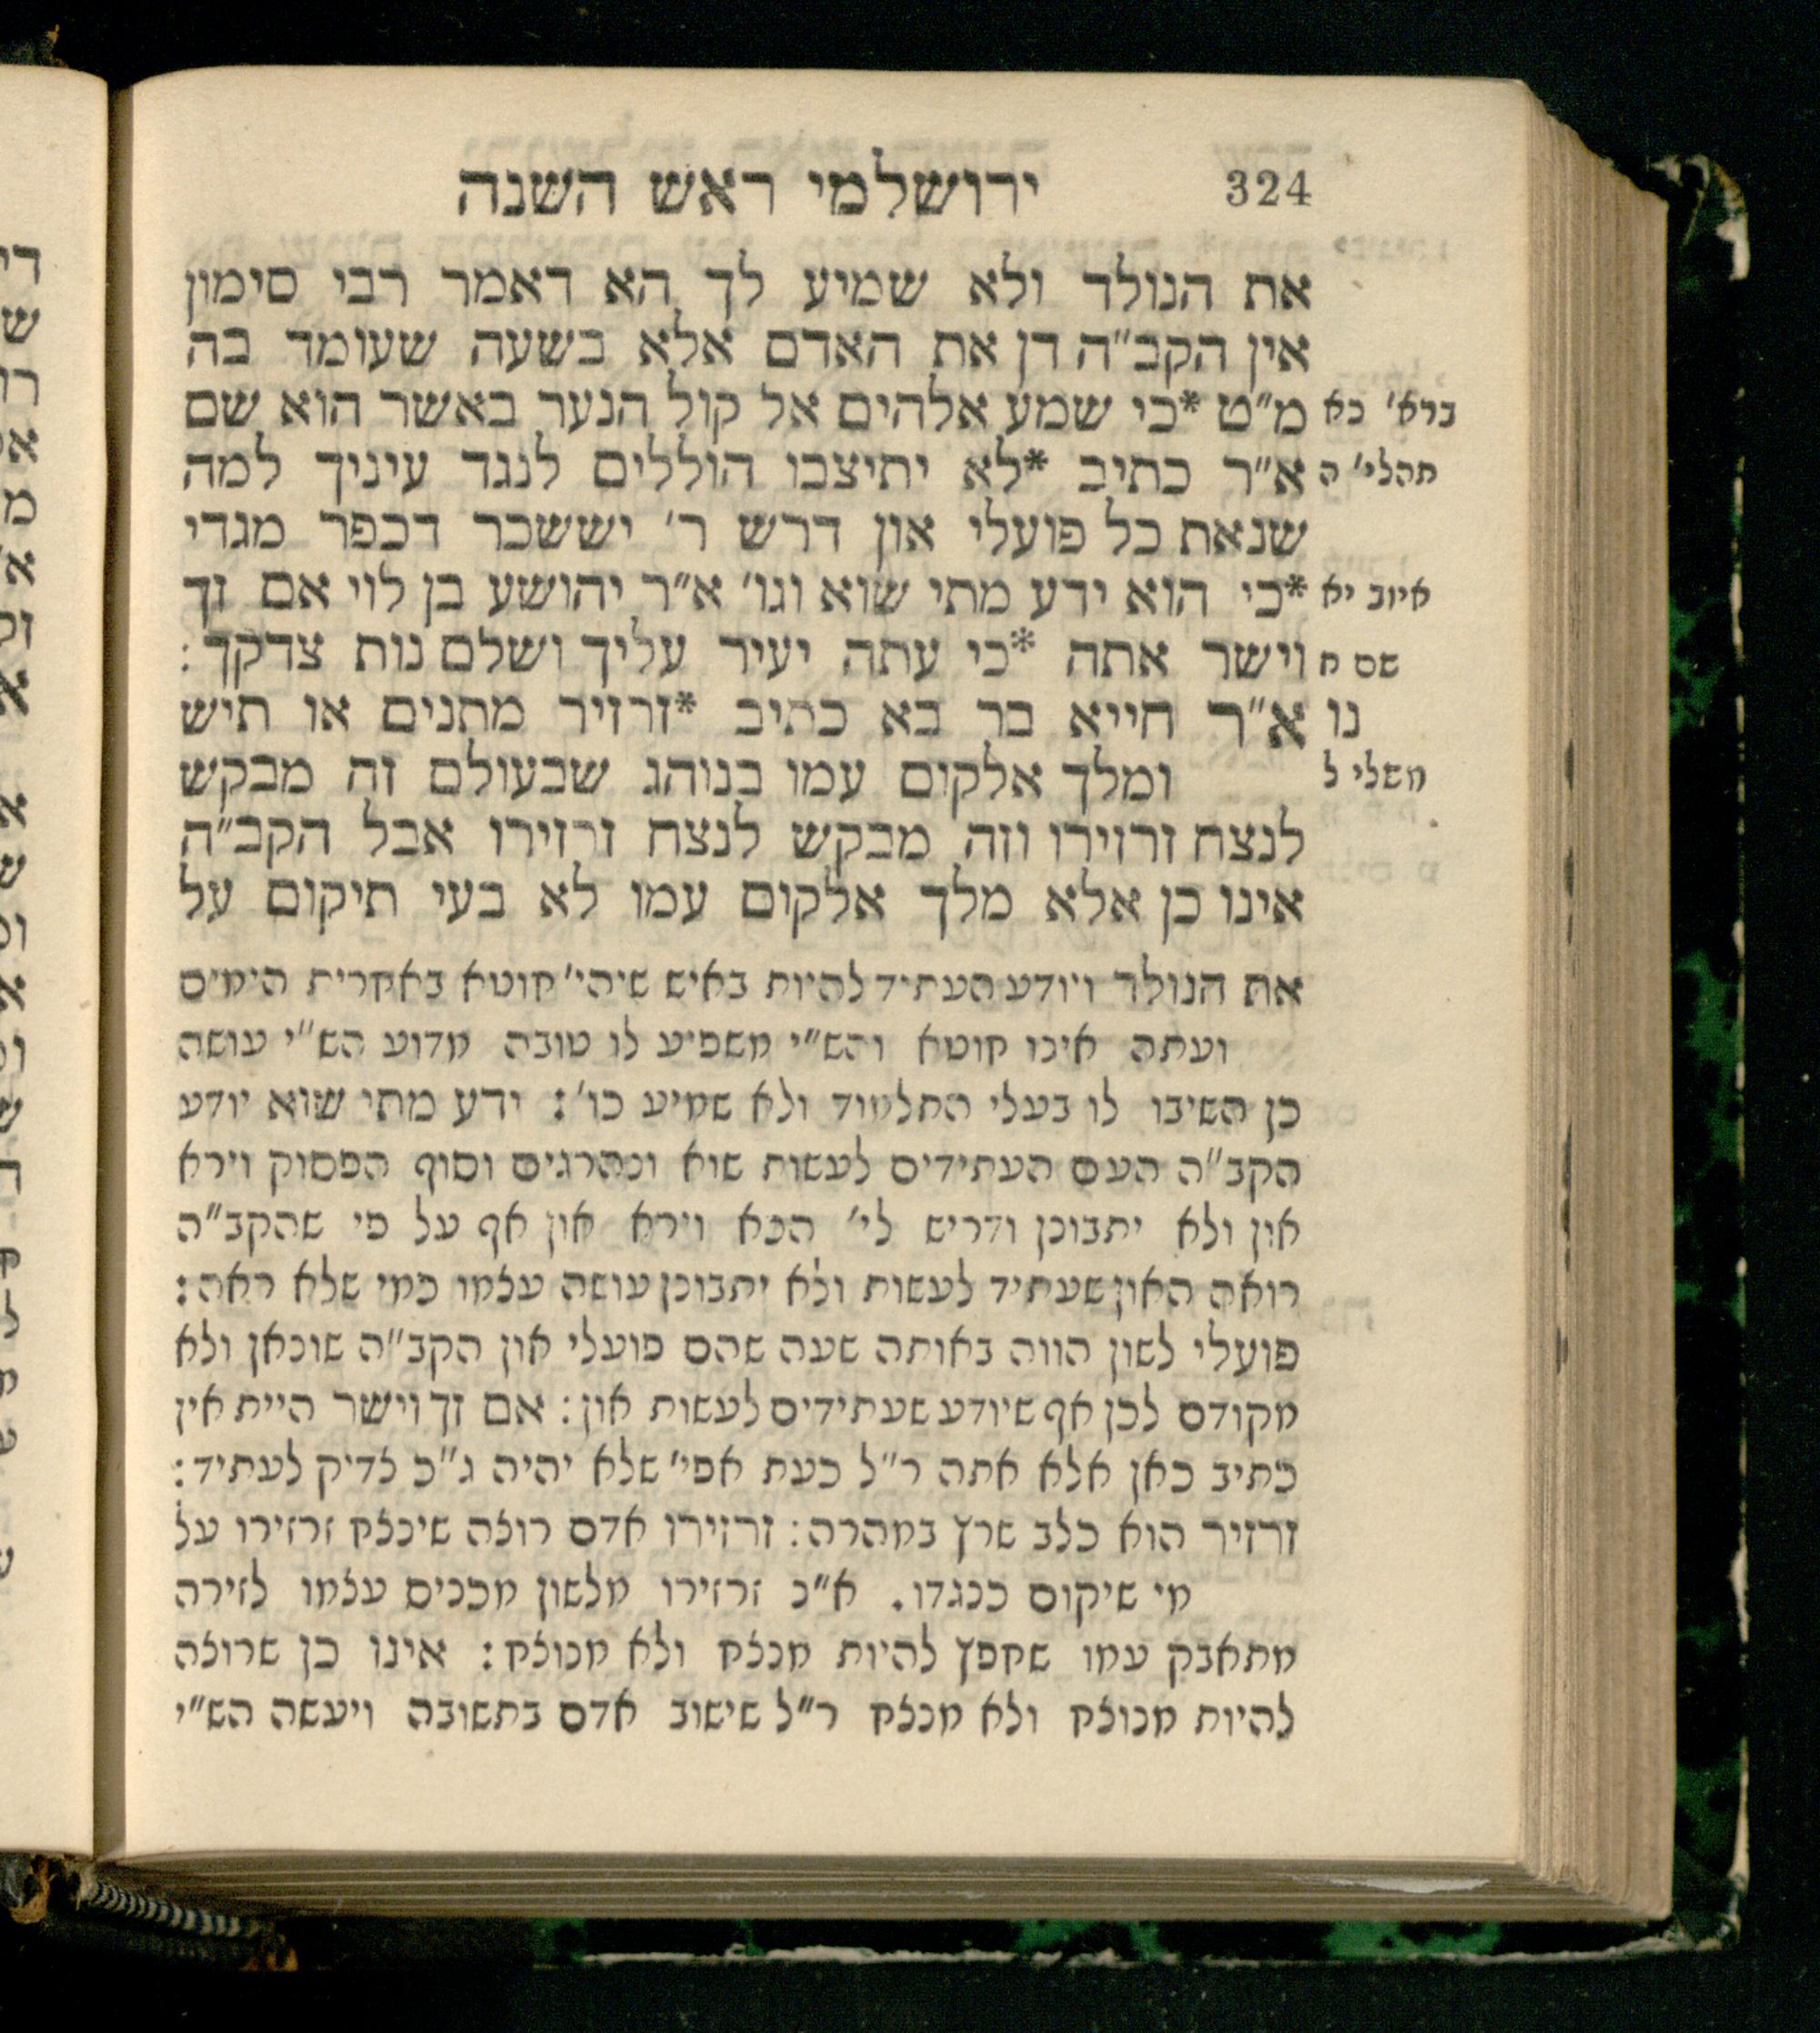 324 ירושלמי ראש השנה
את הנולד ולא שמיע לך הא דאמר רבי סימון
אין הקב״ה דן את האדם אלא בשעה שעומד בה
ברא׳ כא מ״ט *כי שמע אלהים אל קול הנער באשר הוא שם
תהלי׳ ה א״ר כתיב *לא יתיצבו הוללים לנגד עיניך למה
שנאת כל פועלי און דרש ר׳ יששכר דכפר מגדי
איוב יא *כי הוא ידע מתי שוא וגו׳ א״ר יהושע בן לוי אם זך
שם ח וישר אתה *כי עתה יעיר עליך ושלם נות צדקך:
נו א״ר חייא בר בא כתיב *זרזיר מתנים או תיש
משלי ל ומלך אלקום עמו בנוהג שבעולם זה מבקש
לנצח זרזירו וזה מבקש לנצח זרזירו אבל הקב״ה
אינו כן אלא מלך אלקום עמו לא בעי תיקום על
את הנולד ויודע העתיד להיות באיש שיהי׳ חוטא באחרית הימים
ועתה אינו חוטא והש״י משפיע לו טובה מדוע הש״י עושה
כן השיבו לו בעלי התלמוד ולא שמיע כו׳: ידע מתי שוא יודע
הקב״ה העם העתידים לעשות שוא ונהרגים וסוף הפסוק וירא
און ולא יתבונן ודריש לי׳ הכא וירא און אף על פי שהקב״ה
רואה האון שעתיד לעשות ולא יתבונן עושה עצמו כמי שלא ראה:
פועלי לשון הווה באותה שעה שהם פועלי און הקב״ה שונאן ולא
מקודם לכן אף שיודע שעתידים לעשות און: אם זך וישר היית אין
כתיב כאן אלא אתה ר״ל כעת אפי׳ שלא יהיה ג״כ צדיק לעתיד:
זרזיר הוא כלב שרץ במהרה: זרזירו אדם רוצה שינצח זרזירו על
מי שיקום כנגדו. א״נ זרזירו מלשון מכניס עצמו לזירה
מתאבק עמו שחפץ להיות מנצח ולא מנוצח: אינו כן שרוצה
להיות מנוצח ולא מנצח ר״ל שישוב אדם בתשובה ויעשה הש״י